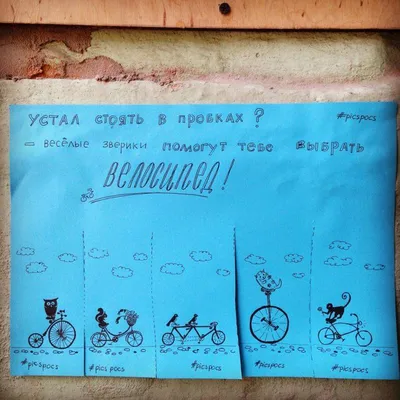 УСТАЛ СТОЯТЬ В ПРОБКАХ?
#picspocs
– ВЕСЁЛЫЕ ЗВЕРИКИ ПОМОГУТ ТЕБЕ ВЫБРАТЬ
ВЕЛОСИПЕД!
#picspocs
#picspocs
#picspocs
#picspocs
#picspocs